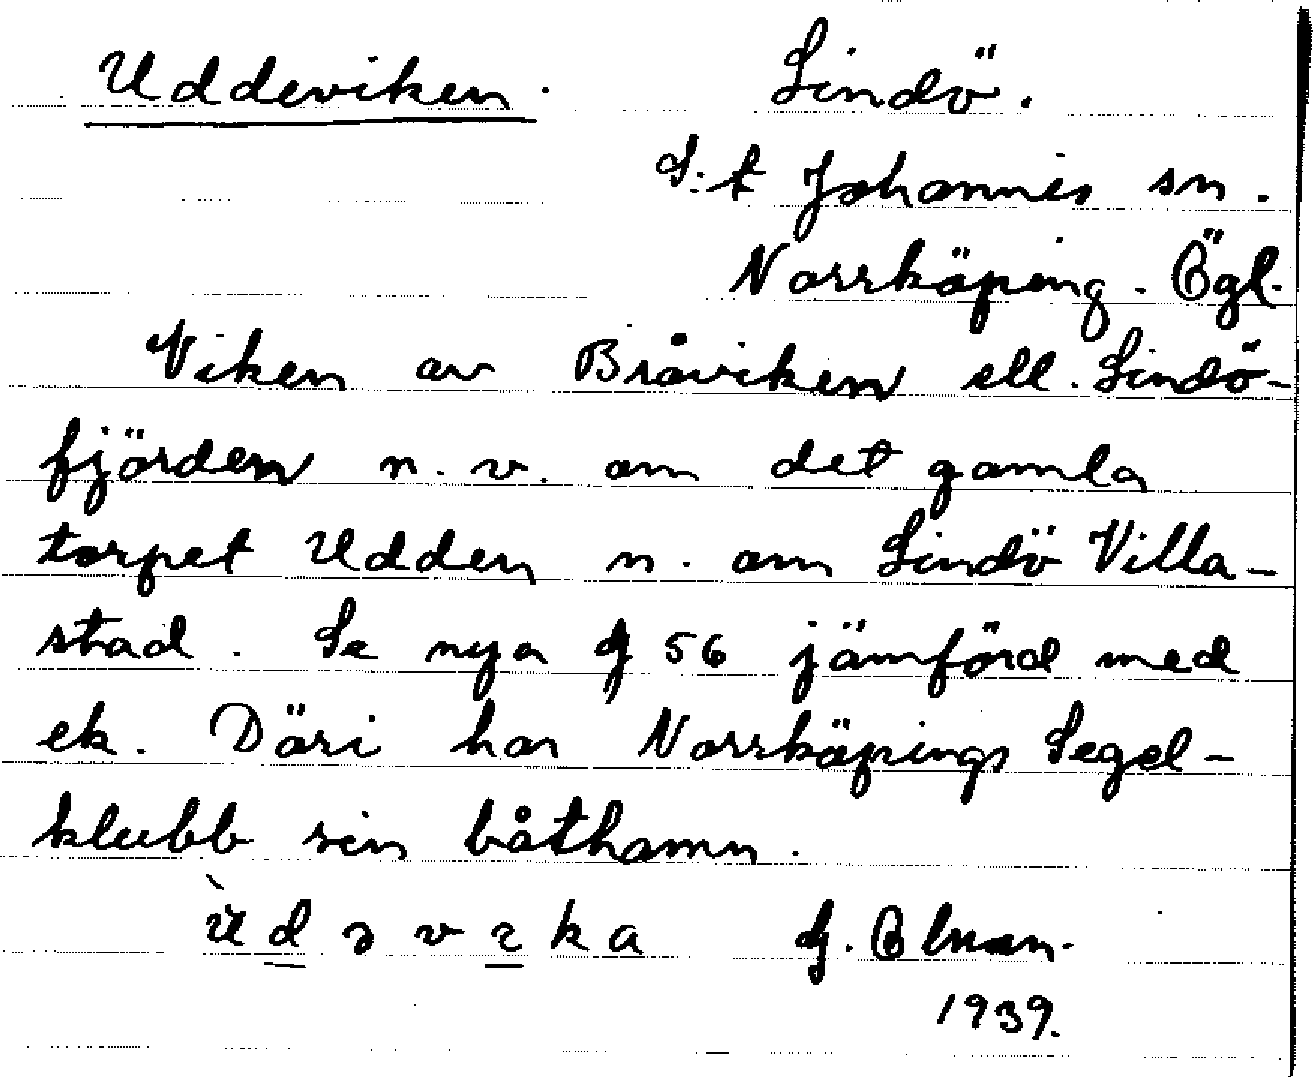 Uddeviken. Lindö.
S:t Johannes sn.
Norrköping. Ögl.
Viken av Bråviken ell. Lindö-
fjärden n. v. om det gamla
torpet Udden n. om Lindö Villa-
stad. Se nya G 56 jämförd med
ek. Däri har Norrköpings Segel-
klubb sin båthamn.
ka G.
1939.